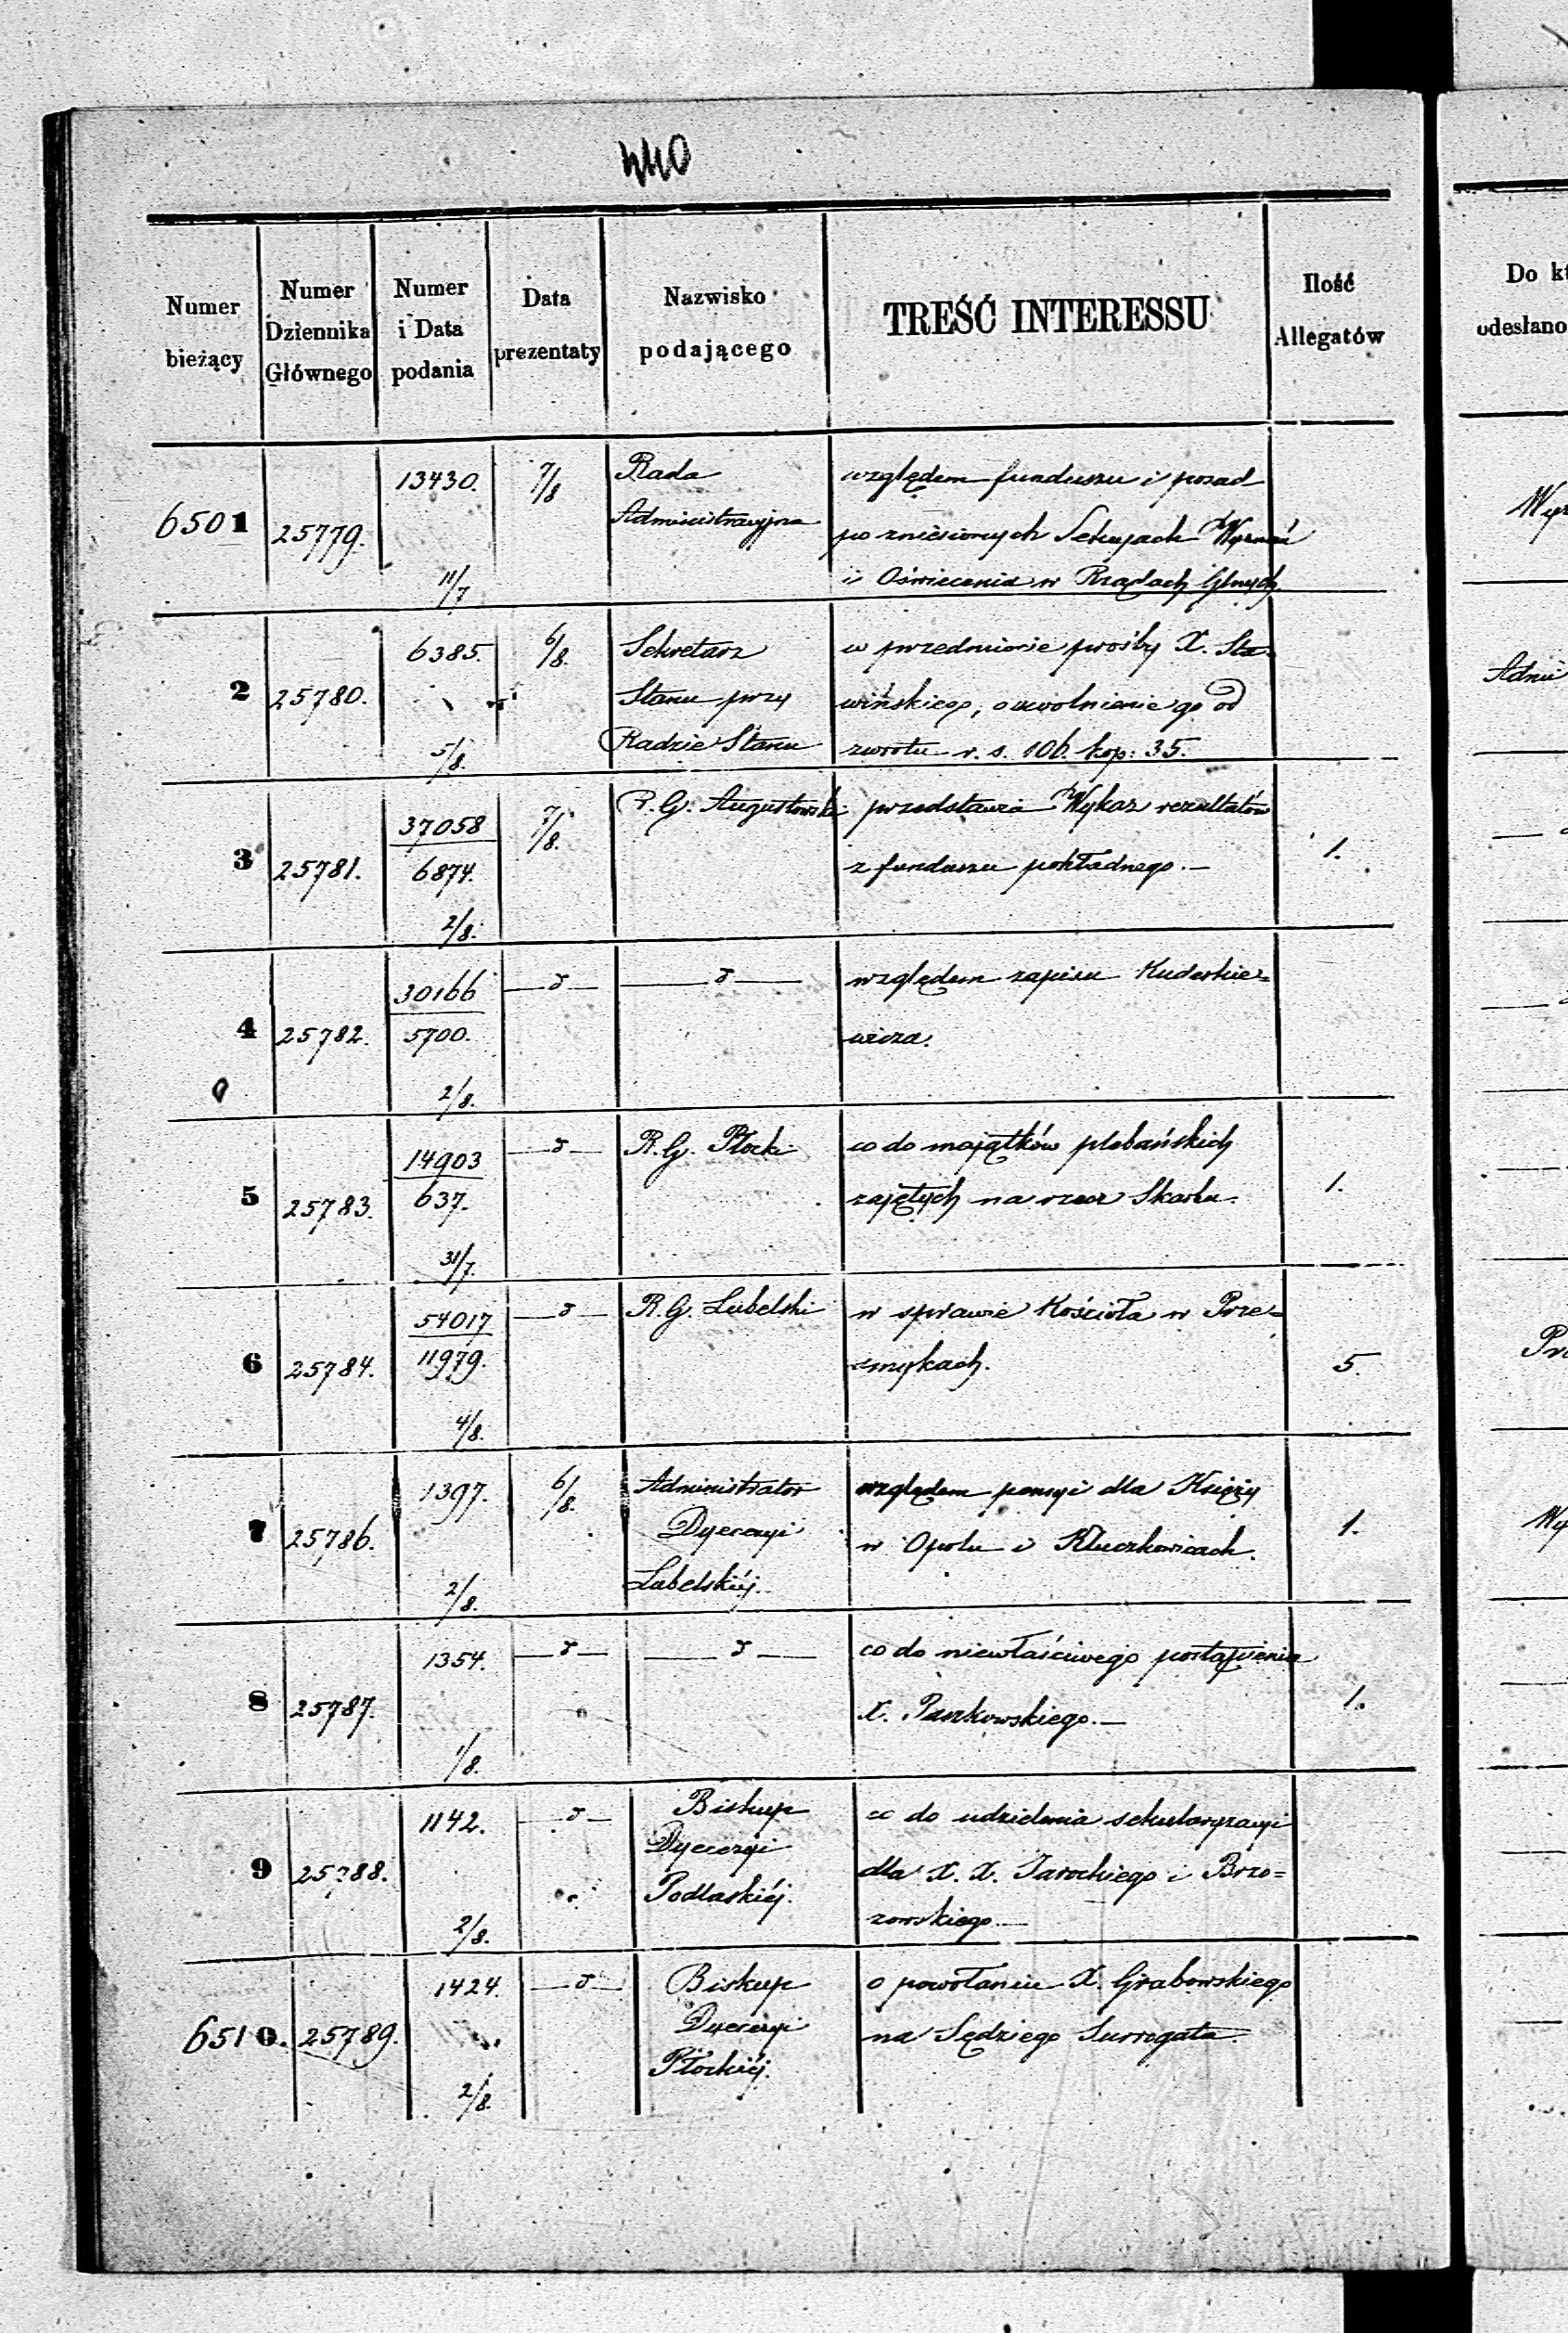 440
Numer bieżący | Numer Dziennika Głównego | Numer i Data podania | Data prezentaty | Nazwisko podającego | TREŚĆ INTERESSU | Ilość Allegatów
Do kt
odesłano
6501 25779. 13430. 11/7 7/8
Rada
Administracyjna
względem funduszu i posad
po zniesionych Sekcyach Wyznań
i Oświecenia w Rządach Glnych.
Wyz
2 25780. 6385. 5/8. 6/8.
Sekretarz
Stanu przy
Radzie Stanu
w przedmiocie prośby X. Sta-
wińskiego, o uwolnienie go od
zwrotu r. s. 106. kop: 35.
Admi
3 25781. 37058 6874. 2/8. 7/8.
R. G. Augustowski
przedstawia Wykaz rezultatów
z funduszu pokładnego. —
1.
4 25782. 30166 5700. 2/8. — d — — d —
względem zapisu Kuderkie=
wicza.
5 25783. 14903 637. 31/7. — d —
R. G. Płocki
co do majątków plebańskich
zajętych na rzecz Skarbu.
1.
6 25784. 54017 11979. 4/8. — d —
R. G. Lubelski
w sprawie Kościoła w Prze=
smykach.
5.
7 25786. 1397. 2/8. 6/8.
Administrator
Dyecezyi
Lubelskiéj.
względem pensyi dla Księży
w Opolu i Kluczkowicach.
1.
8 25787. 1354. 1/8. — d — — d —
co do niewłaściwego postąpienia
X. Paszkowskiego. —
1.
9 25788. 1142. 2/8. — d —
Biskup
Dyecezyi
Podlaskiéj.
co do udzielenia sekularyzacyi
dla X. X. Jarockiego i Brzo=
zowskiego. —
6510. 25789. 1424. 2/8. — d —
Biskup
Dyecezyi
Płockiéj.
o powołaniu X. Grabowskiego
na Sędziego Surrogata.